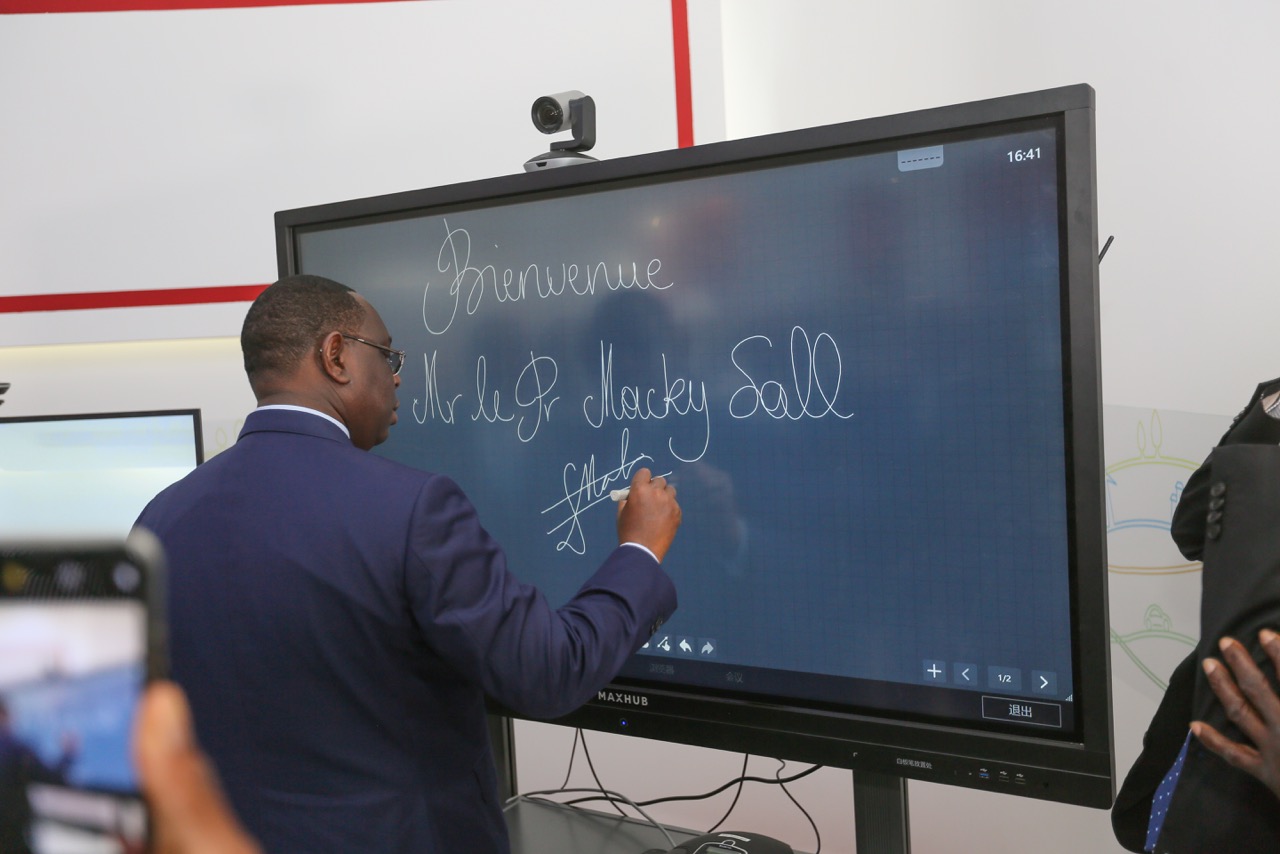 16:41
Bienvenue
Mr le Pr Macky Sall
1/2
退出
MAXHUB